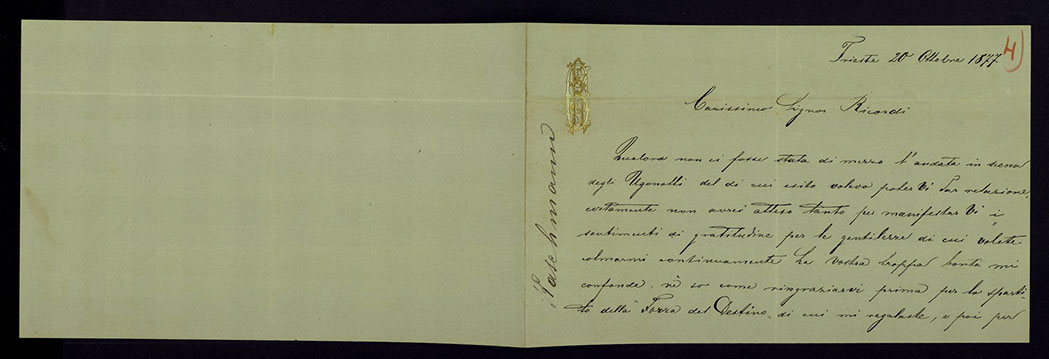 Trieste 20 Ottobre 1877
4)
Carissimo Signor Ricordi
Qualora non ci fosse stata di mezzo l'andata in scena
degli Ugonotti del di cui esito volevo poter Vi far relazione,
certamente non avrei atteso tanto per manifestar Vi i
sentimenti di gratitudine per le gentilezze di cui volete
colmarmi continuamente La vostra troppa bontà mi
confonde, nè so come ringraziarvi prima per lo sparti-
to della Forza del Destino, di cui mi regalaste, e poi per
Paschmann